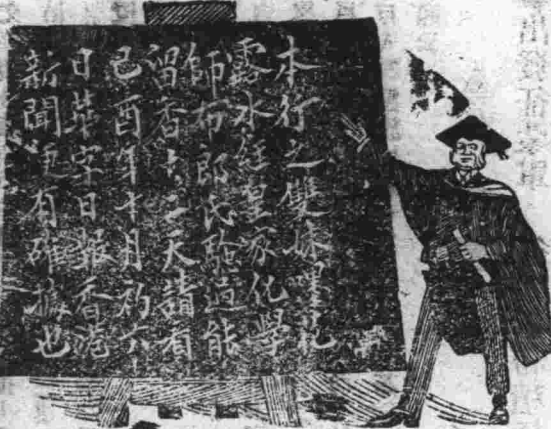 本行之雙妹嚜花
露水經皇家化學
師布郎氏驗過能
留香天請看
己酉年十月初六
日華字日報香港
新聞便有確據也